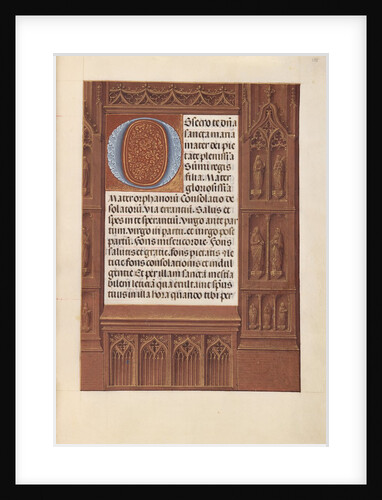 Obsecro te dña
sancta maria
mater dei pie
tate plenissĩa
Sũmi regis
filia. Mater
gloriosissĩa
Mater orphanorũ Consolatio de
solatorũ. Via errantiũ. Salus et
spes in te sperantiũ. Virgo ante par
tum. virgo in partu. et virgo post
partũ. Fons misericordie. Fons
salutis et gratie. fons pietatis et le
ticie fons consolationis et indul
gentie Et per illam sanctã inesti
bilem leticiã qua exultauit spũs
tuus in illa hora quando tibi per